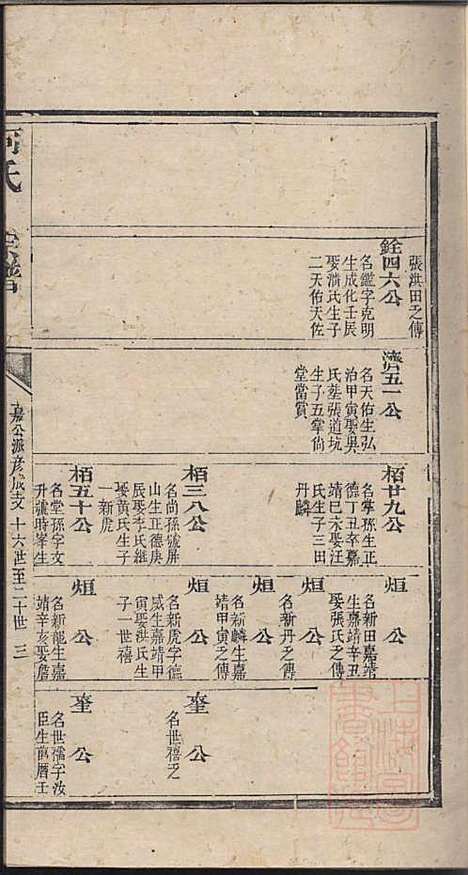 張洪田之傳
銓四六公
名鑑字克明
生成化壬辰
娶潸氏生子
二天佑天佐
濟五一公
名天佑生弘
治甲寅娶奧
氏塟張道坑
生子五掌尙
堂當賞
栢廿九公
名掌孫生正
德丁丑卒嘉
靖巳未娶汪
氏生子三田
丹麟
栢三八公
名尚孫號屏
山生正德庚
辰娶李氏繼
娶黃氏生子
一新虎
栢五十公
名堂孫字文
升號時峯生
烜公
名新田嘉靖
生嘉靖辛丑
娶張氏之傳
烜公
名新丹之傳
烜公
名新麟生嘉
靖甲寅之傳
烜公
名新虎字德
威生嘉靖甲
寅娶洪氏生
子一世禧
烜公
名新龍生嘉
靖辛亥娶詹
奎公
名世禧之
奎公
名世穤字汝
臣生萬曆壬
氏
譜
嘉公派彥成支 十六世至二十世 三